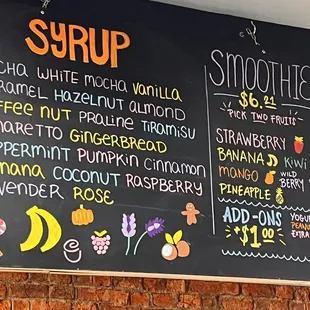 SYRUP
CHA WHITE MOCHA VANILLA
RAMEL HAZELNUT ALMOND
FFEE NUT PRALINE TIRAMISU
MARETTO GINGERBREAD
PPERMINT PUMPKIN CINNAMON
NANA COCONUT RASPBERRY
VENDER ROSE
SMOOTHIE
$6.21
PICK TWO FRUITS
STRAWBERRY
BANANA KIWI
MANGO WILD BERRY
PINEAPPLE
ADD-ONS
+$1.00
YOGU
PEANUT
EXTRA